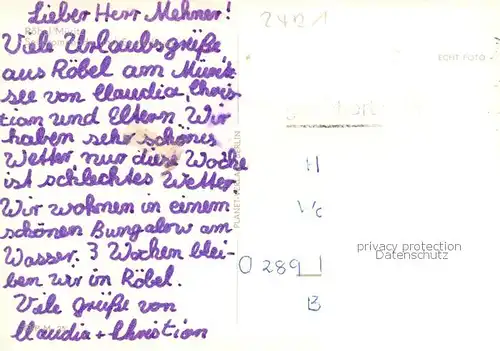 Lieber Herr Mehner!
Viele Urlaubsgrüße
aus Röbel am Müritz
see von Claudia, Chris-
tian und Eltern. Wir
haben sehr schönes
Wetter nur diese Woche
ist schlechtes Wetter.
Wir wohnen in einem
schönen Bungalow am
Wasser. 3 Wochen blei-
ben wir in Röbel.
Viele grüße von
Claudia + Christian
ECHT FOTO
privacy protection
Datenschutz
0289
B